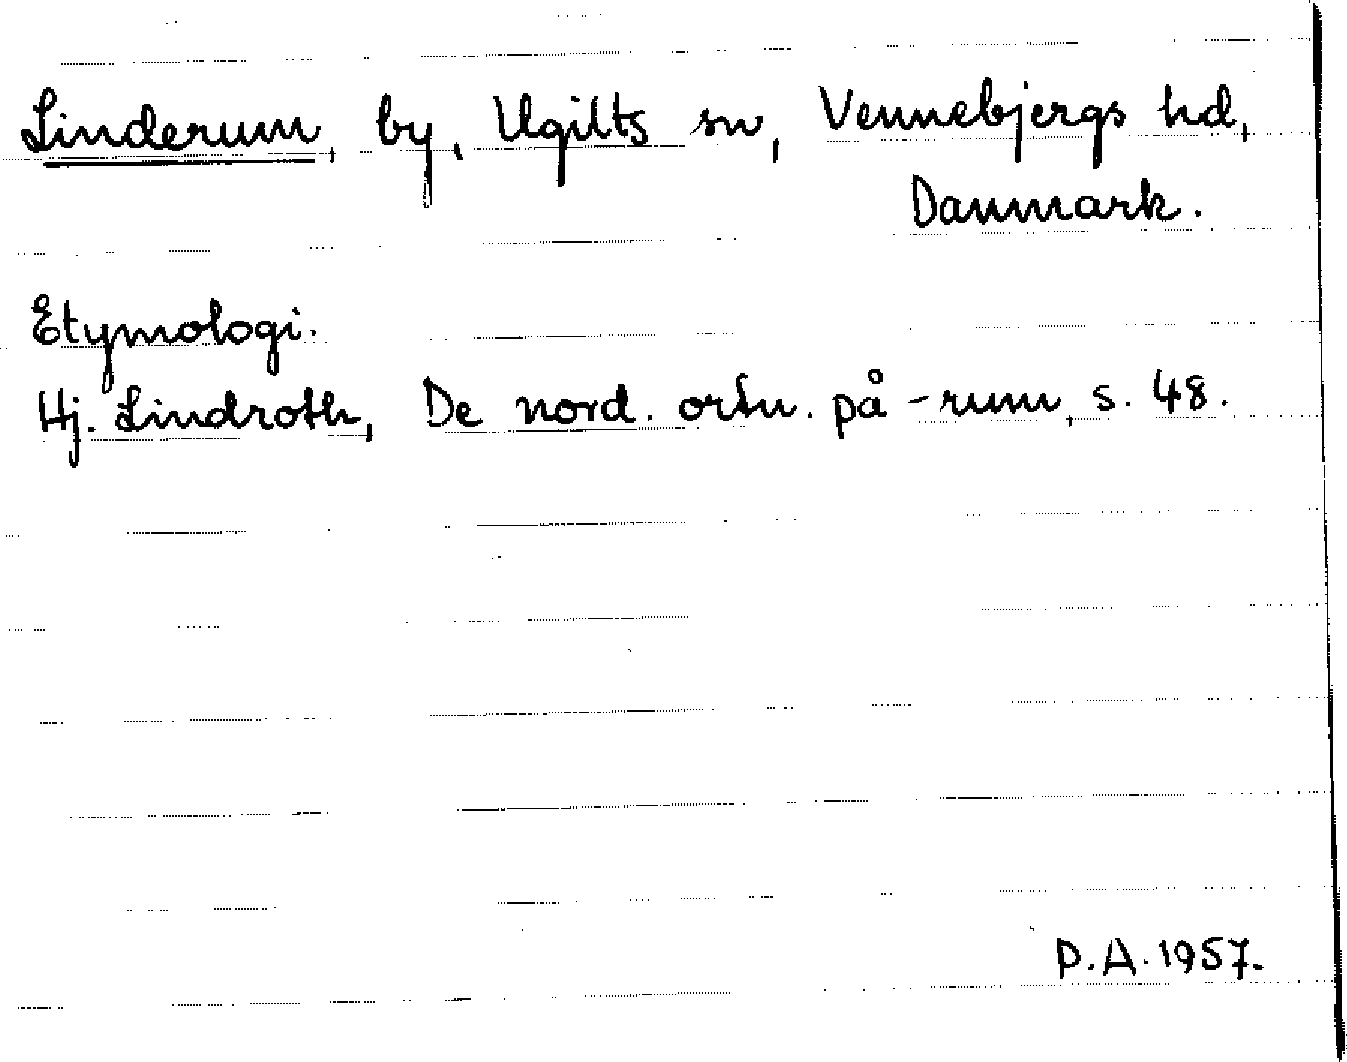 Linderum, by, Ugilts sn, Vennebjergs hd,
Danmark.
Etymologi.
Hj. Lindroth, De nord. ortn. på -rum, s. 48.
P.A. 1957.